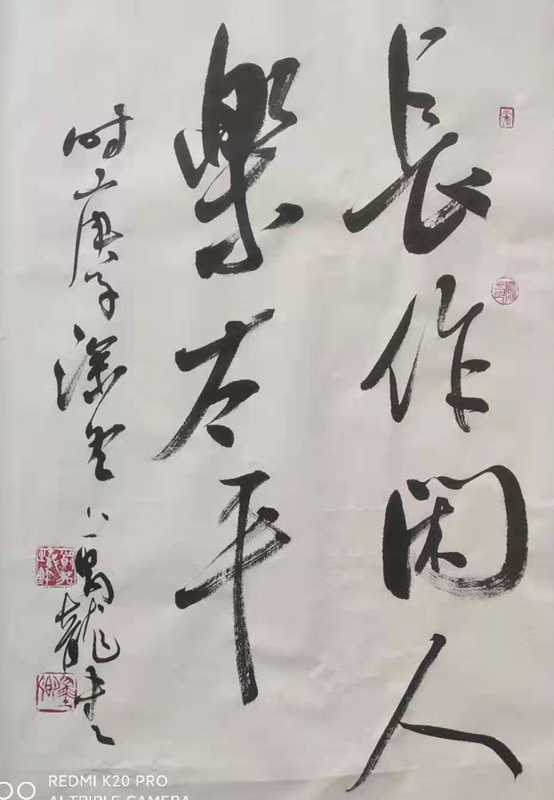 長作閑人
樂太平
时庚子深冬
萬龍书
REDMI K20 PRO
AI TRIPLE CAMERA